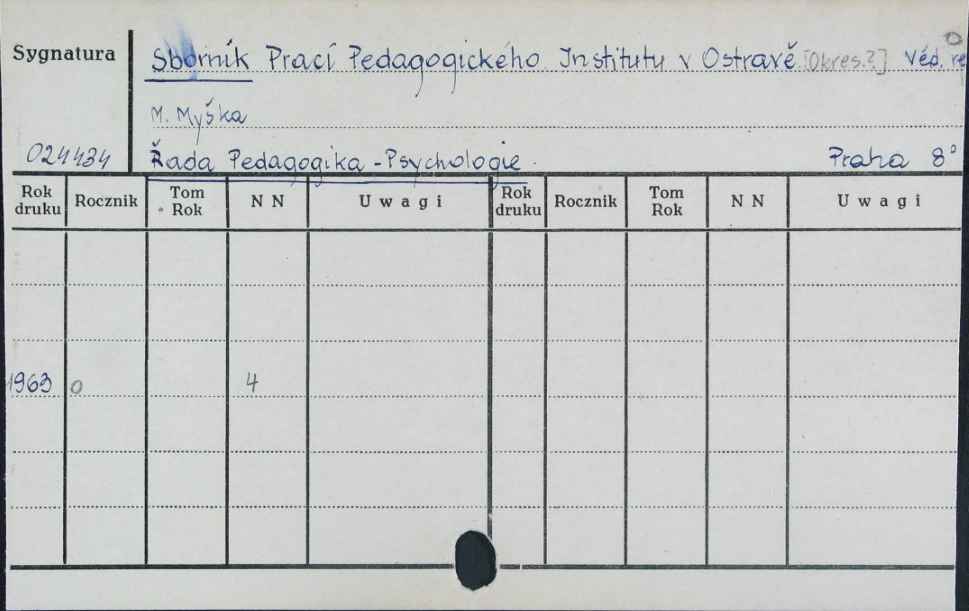 Sygnatura
Sborník Prací Pedagogického Institutu v Ostravě [Okres.?] Véd. re
M. Myška
024434 Řada Pedagogika - Psychologie. Praha 8°
Rok druku Rocznik Tom Rok N N Uwagi Rok druku Rocznik Tom Rok N N Uwagi
1963 0 4